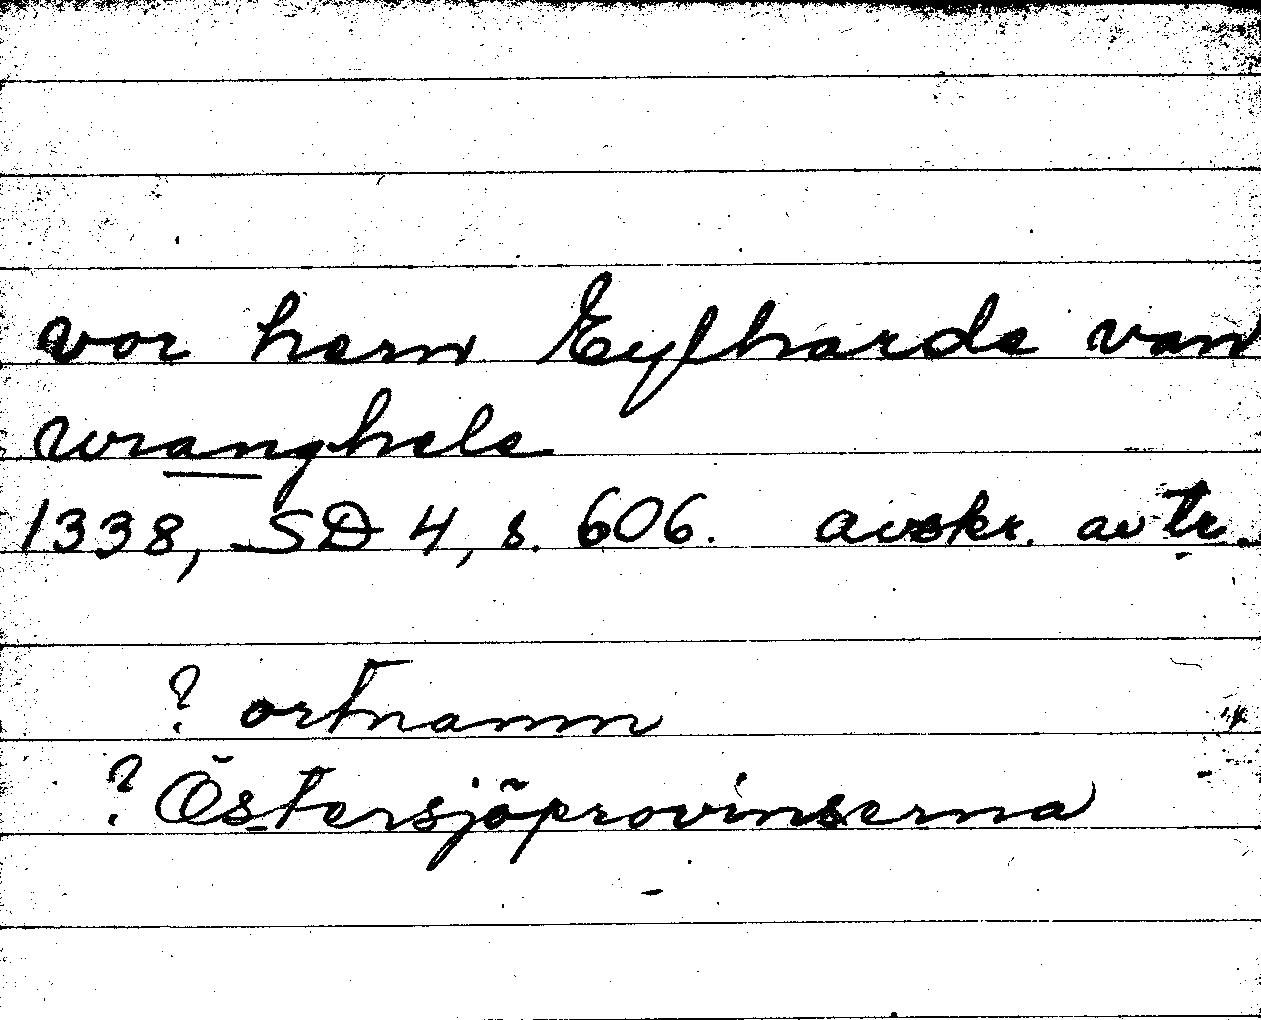 vor hern Eylharde van
wranghele
1338, SD 4, s. 606. avskr. av tr.
? ortnamn
? Östersjöprovinserna